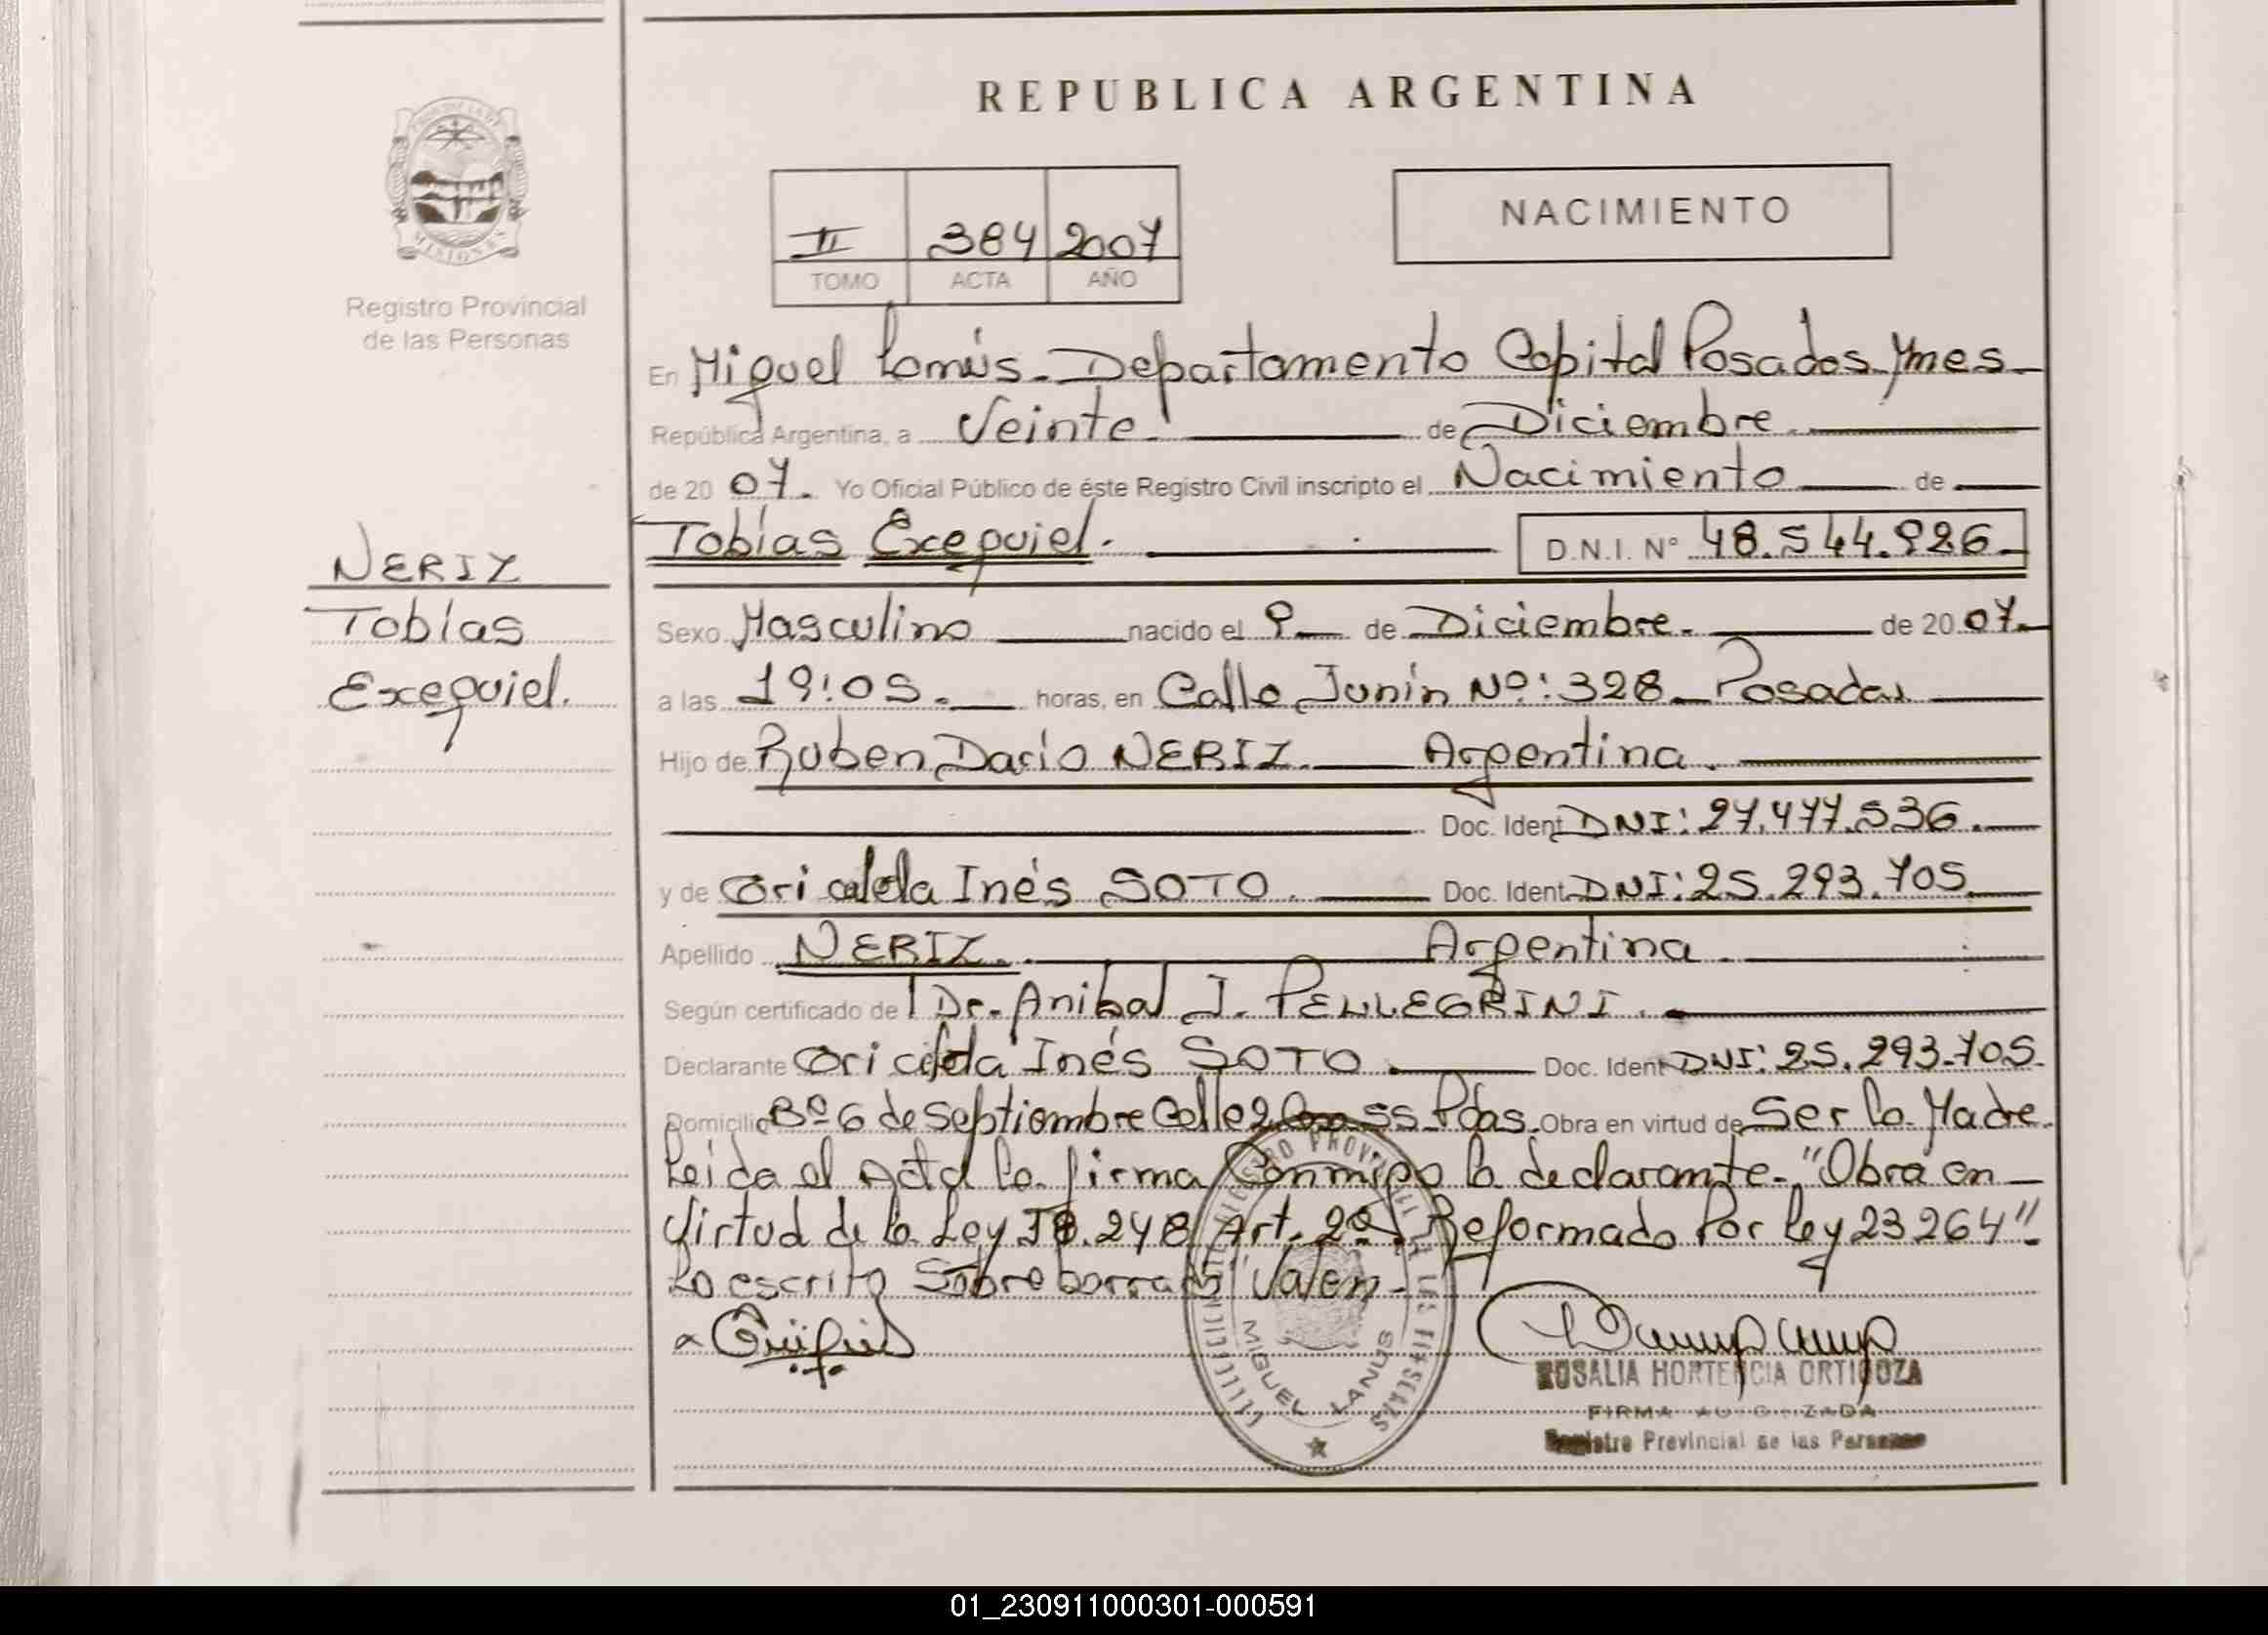 REPUBLICA ARGENTINA
II 384 2007
TOMO ACTA AÑO
NACIMIENTO
MISIONES
Registro Provincial
de las Personas
En Miguel Lanús. Departamento Capital Posadas Mnes
República Argentina, a Veinte. de Diciembre.
de 20 07. Yo Oficial Público de éste Registro Civil inscripto el Nacimiento de
Tobías Exequiel. D.N.I. N° 48.544.926.
NERIZ
Tobías
Exequiel.
Sexo Masculino nacido el 9 de Diciembre. de 20 07.
a las 19:05. horas, en Calle Junín Nº: 328 Posadas
Hijo de Ruben Dario NERIZ. Argentina.
Doc. Ident DNI: 27.477.536.
y de Inés SOTO. Doc. Ident DNI: 25.293.705
Apellido NERIZ. Argentina.
Según certificado de Dr. Anibal J. PELLEGRINI.
Declarante Inés SOTO. Doc. Ident DNI: 25.293.705.
Domicilio Bº 6 de Septiembre Calle Pdas. Obra en virtud de Ser la Madre.
Leida el Acta la firma Conmigo la declarante. "Obra en
Virtud de la Ley 18.248 Art. 2º Reformado Por Ley 23264".
Lo escrito Sobre borrado "Valen.
MIGUEL LANUS
ROSALIA HORTENCIA ORTIGOZA
FIRMA AUTORIZADA
Registro Provincial de las Personas
01_230911000301-000591